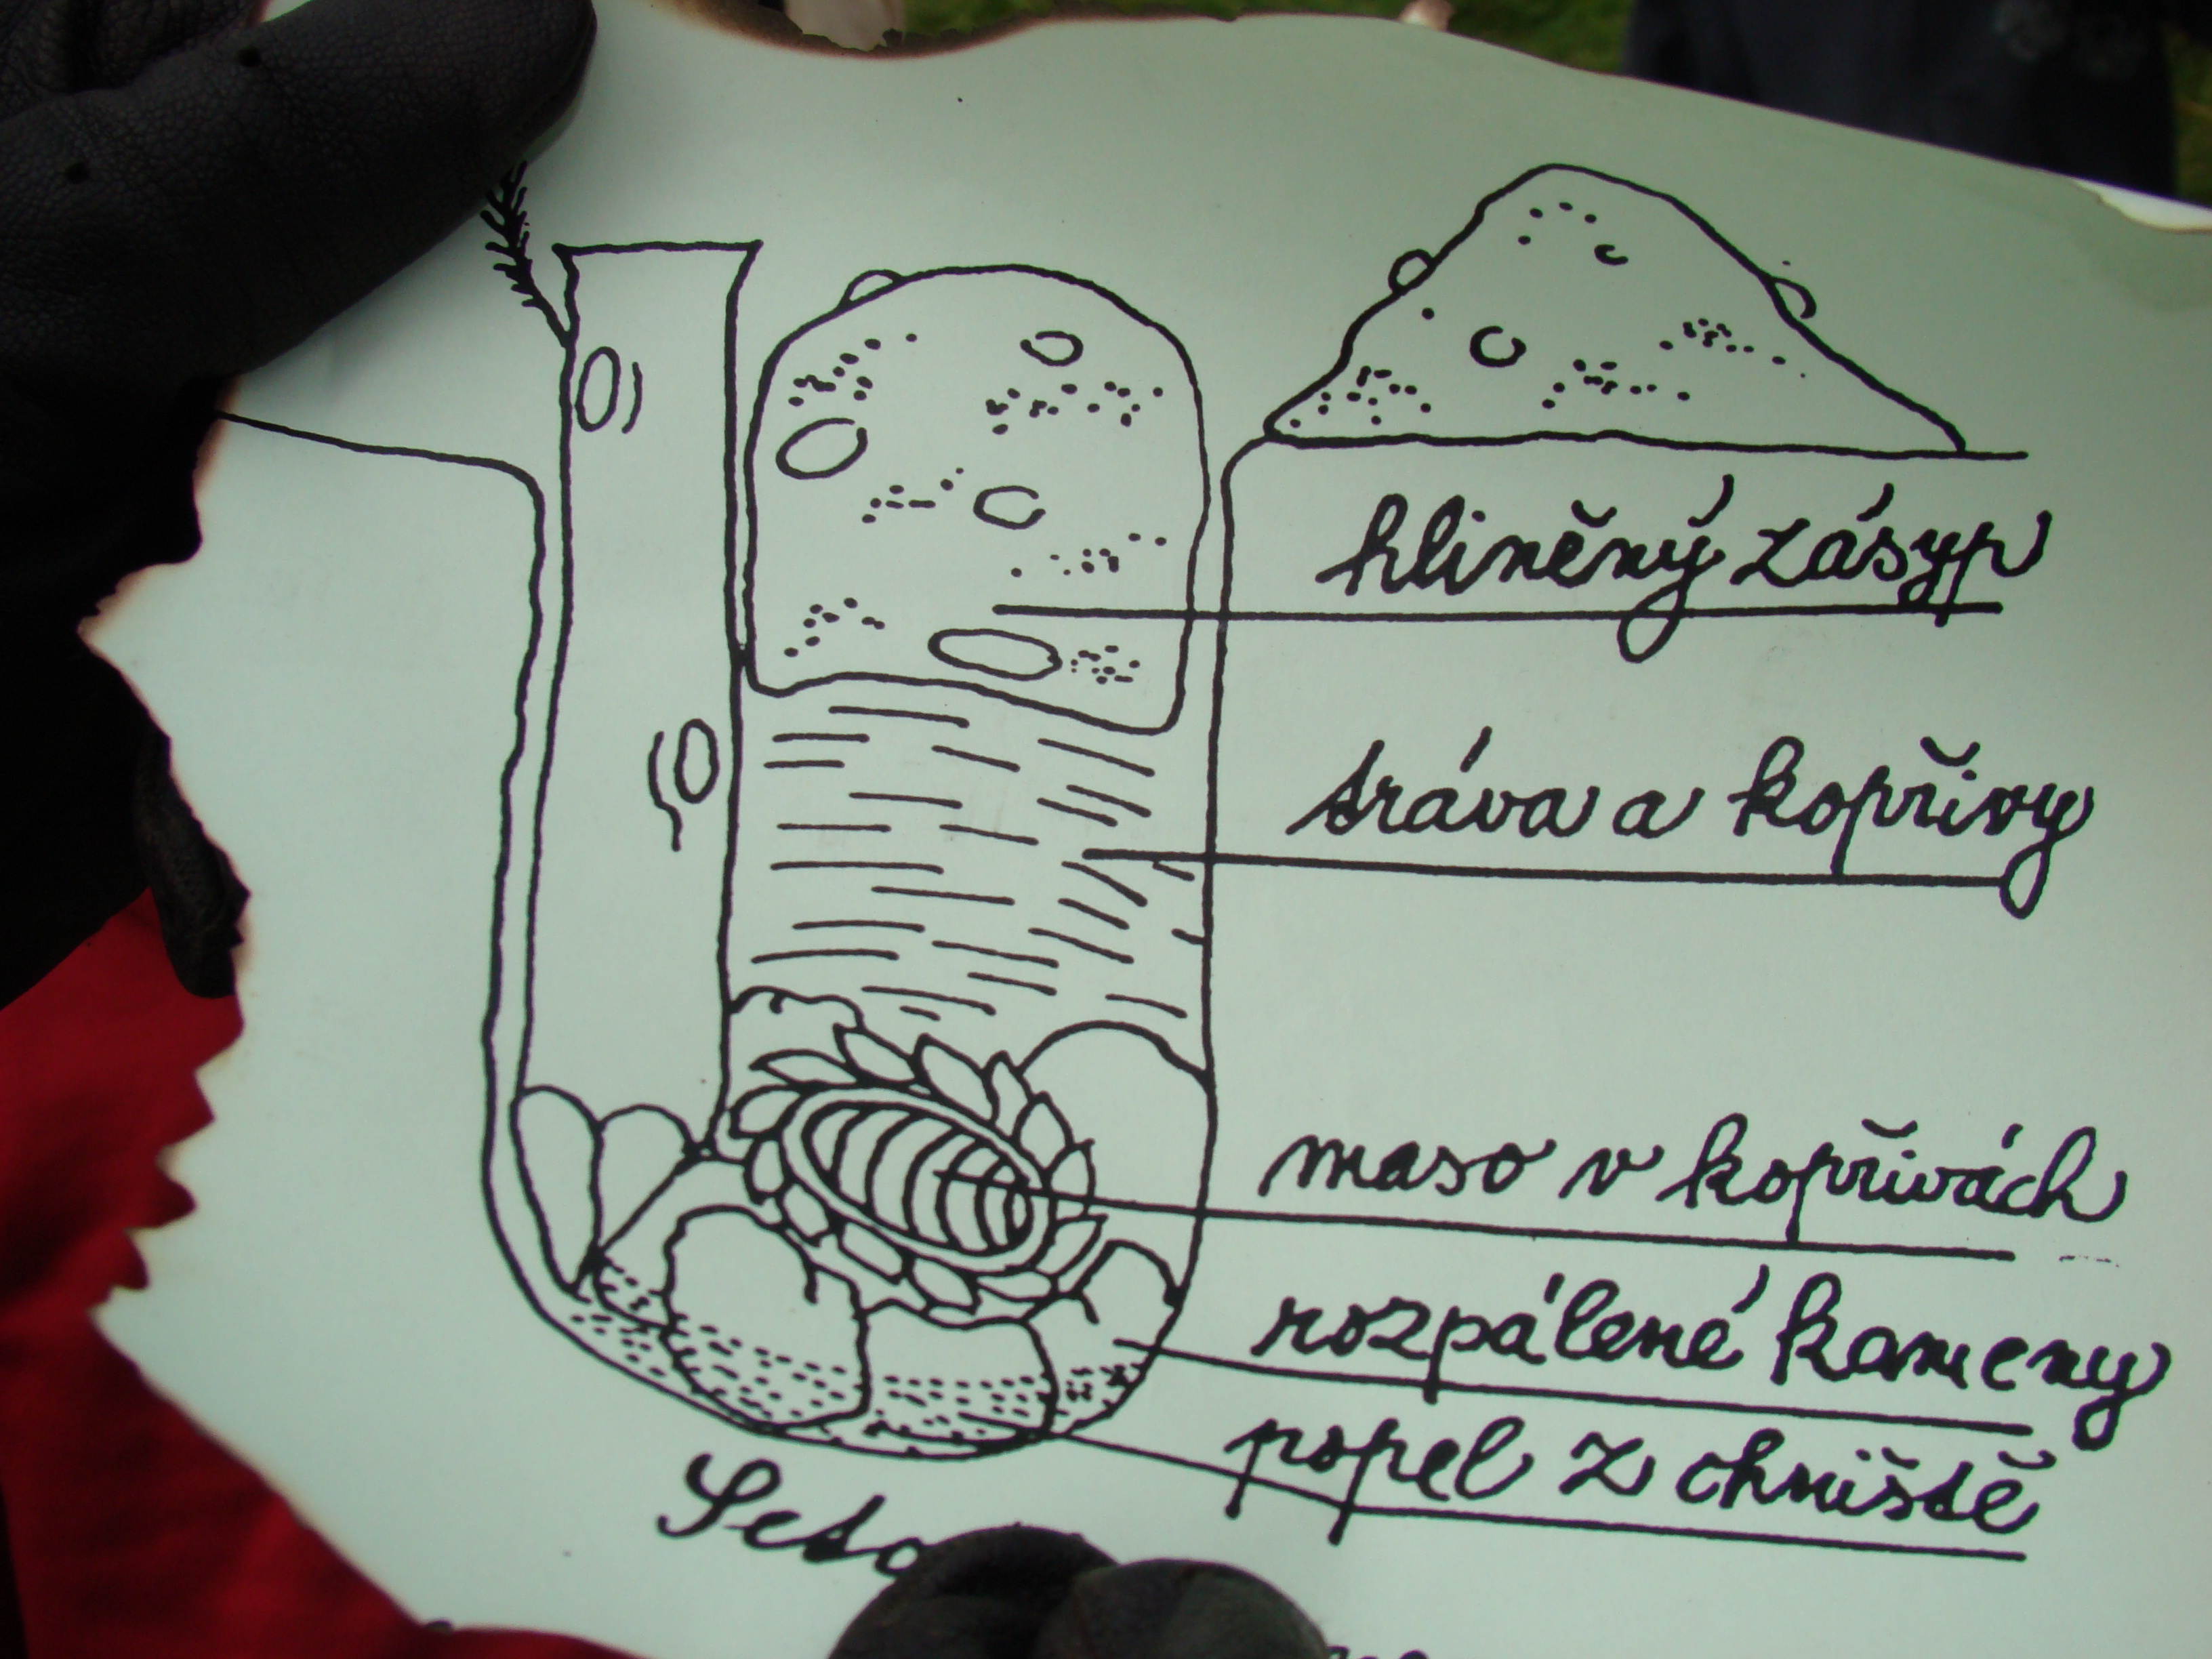 hliněný zásyp
tráva a kopřivy
maso v kopřivách
rozpálené kameny
popel z ohniště